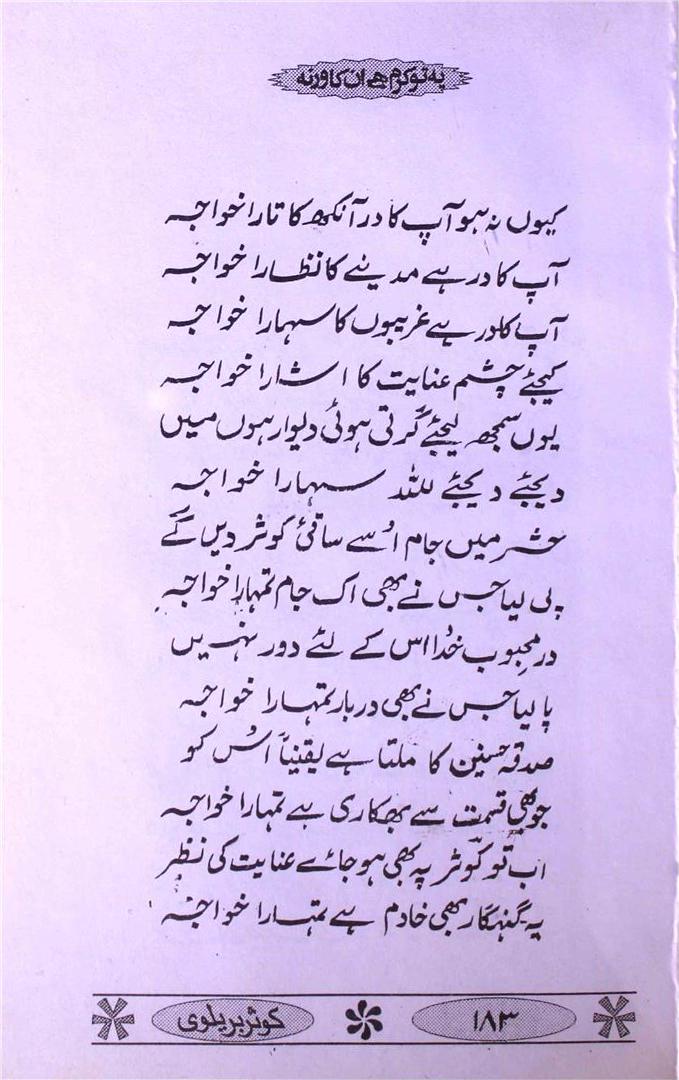 یہ تو کرم ہے ان کا ورنہ
کیوں نہ ہو آپ کا در آنکھ کا تارا خواجہ
آپ کا در ہے مدینے کا نظارا خواجہ
آپ کا در ہے غریبوں کا سہارا خواجہ
کیجئے چشم عنایت کا اشارا خواجہ
یوں سمجھ لیجئے گرتی ہوئی دیوار ہوں میں
دیجئے دیجئے للہ سہارا خواجہ
حشر میں جام اُسے ساقیٔ کوثر دیں گے
پی لیا جس نے بھی اک جام تمہارا خواجہ
درِ محبوب خُدا اس کے لئے دور نہیں
پا لیا جس نے بھی دربار تمہارا خواجہ
صدقہ حسنین کا ملتا ہے یقیناً اُس کو
جو بھی قسمت سے بھکاری ہے تمہارا خواجہ
اب تو کوثر پہ بھی ہو جائے عنایت کی نظر
یہ گنہگار بھی خادم ہے تمہارا خواجہ
۱۸۳
کوثر بریلوی